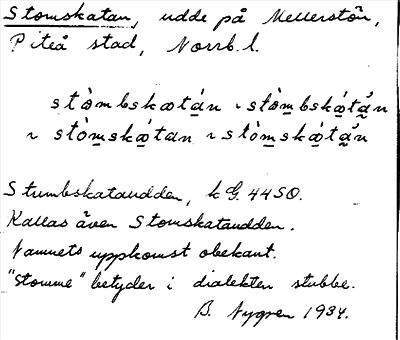 Stomskatan, udde på Mellerstön,
Piteå stad, Norrb. l.
stòmbskatán ~ stòm̲bskát́án
~ stòm̲skátan ~ stòm̲skátǻn
Stumbskataudden, k G. 44 SO.
Kallas även Stomskataudden.
Namnets uppkomst obekant.
"Stomme" betyder i dialekten stubbe.
B. Nygren 1934.